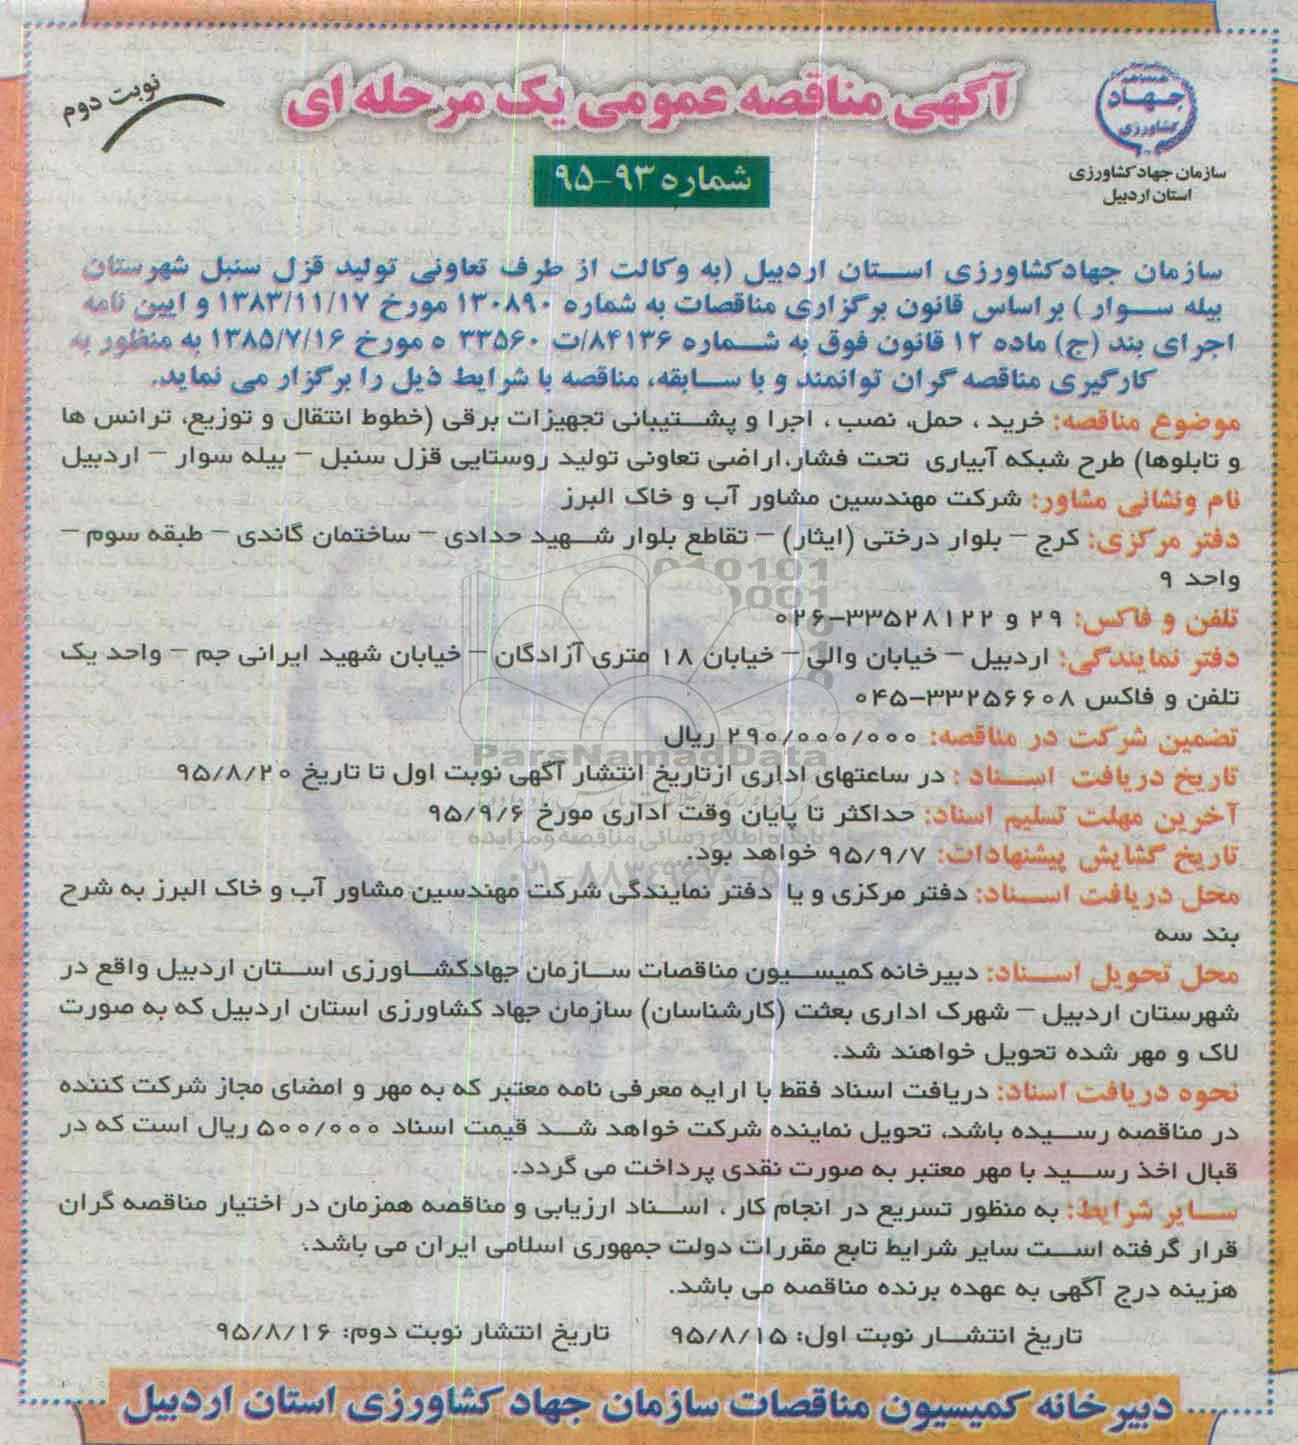 آگهی مناقصه عمومی یک مرحله ای
نوبت دوم
جهاد
کشاورزی
سازمان جهاد کشاورزی
استان اردبیل
شماره ۹۳-۹۵
سازمان جهادکشاورزی استان اردبیل (به وکالت از طرف تعاونی تولید قزل سنبل شهرستان
بیله سوار ) براساس قانون برگزاری مناقصات به شماره ۱۳۰۸۹۰ مورخ ۱۳۸۳/۱۱/۱۷ و ایین نامه
اجرای بند (ج) ماده ۱۲ قانون فوق به شماره ۸۴۱۳۶/ت ۳۳۵۶۰ ه مورخ ۱۳۸۵/۷/۱۶ به منظور به
کارگیری مناقصه گران توانمند و با سابقه، مناقصه با شرایط ذیل را برگزار می نماید.
موضوع مناقصه: خرید ، حمل، نصب ، اجرا و پشتیبانی تجهیزات برقی (خطوط انتقال و توزیع، ترانس ها
و تابلوها) طرح شبکه آبیاری تحت فشار،اراضی تعاونی تولید روستایی قزل سنبل – بیله سوار – اردبیل
نام ونشانی مشاور: شرکت مهندسین مشاور آب و خاک البرز
دفتر مرکزی: کرج – بلوار درختی (ایثار) – تقاطع بلوار شهید حدادی – ساختمان گاندی – طبقه سوم –
واحد ۹
تلفن و فاکس: ۲۹ و ۳۳۵۲۸۱۲۲-۰۲۶
دفتر نمایندگی: اردبیل – خیابان والی – خیابان ۱۸ متری آزادگان – خیابان شهید ایرانی جم – واحد یک
تلفن و فاکس ۳۳۲۵۶۶۰۸-۰۴۵
تضمین شرکت در مناقصه: ۲۹۰/۰۰۰/۰۰۰ ریال
تاریخ دریافت اسناد : در ساعتهای اداری ازتاریخ انتشار آگهی نوبت اول تا تاریخ ۹۵/۸/۲۰
آخرین مهلت تسلیم اسناد: حداکثر تا پایان وقت اداری مورخ ۹۵/۹/۶
تاریخ گشایش پیشنهادات: ۹۵/۹/۷ خواهد بود.
محل دریافت اسناد: دفتر مرکزی و یا دفتر نمایندگی شرکت مهندسین مشاور آب و خاک البرز به شرح
بند سه
محل تحویل اسناد: دبیرخانه کمیسیون مناقصات سازمان جهادکشاورزی استان اردبیل واقع در
شهرستان اردبیل – شهرک اداری بعثت (کارشناسان) سازمان جهاد کشاورزی استان اردبیل که به صورت
لاک و مهر شده تحویل خواهند شد.
نحوه دریافت اسناد: دریافت اسناد فقط با ارایه معرفی نامه معتبر که به مهر و امضای مجاز شرکت کننده
در مناقصه رسیده باشد، تحویل نماینده شرکت خواهد شد قیمت اسناد ۵۰۰/۰۰۰ ریال است که در
قبال اخذ رسید با مهر معتبر به صورت نقدی پرداخت می گردد.
سایر شرایط: به منظور تسریع در انجام کار ، اسناد ارزیابی و مناقصه همزمان در اختیار مناقصه گران
قرار گرفته است سایر شرایط تابع مقررات دولت جمهوری اسلامی ایران می باشد.
هزینه درج آگهی به عهده برنده مناقصه می باشد.
تاریخ انتشار نوبت اول: ۹۵/۸/۱۵ تاریخ انتشار نوبت دوم: ۹۵/۸/۱۶
دبیرخانه کمیسیون مناقصات سازمان جهاد کشاورزی استان اردبیل
ParsNamadData
پایگاه اطلاع رسانی مناقصه و مزایده
۰۲۱-۸۸۳۴۹۶۷۰-۵